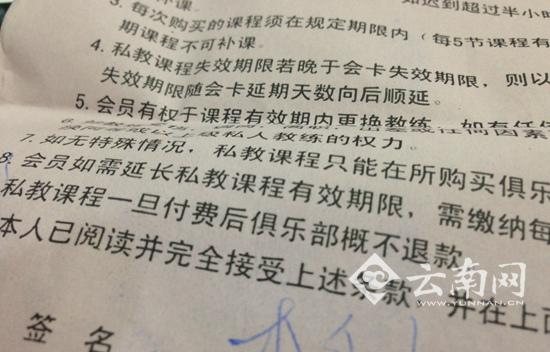 补课。
如迟到超过半小时
3. 每次购买的课程须在规定期限内（每5节课程有
期课程不可补课。
4. 私教课程失效期限若晚于会卡失效期限，则以
失效期限随会卡延期天数向后顺延。
5. 会员有权于课程有效期内更换教练，如有任何
6.
因素
私人教练的权力。
7. 如无特殊情况，私教课程只能在所购买俱乐
8. 会员如需延长私教课程有效期限，需缴纳每
私教课程一旦付费后俱乐部概不退款
本人已阅读并完全接受上述条款，并在上面
签名
云南网
WWW.YUNNAN.CN